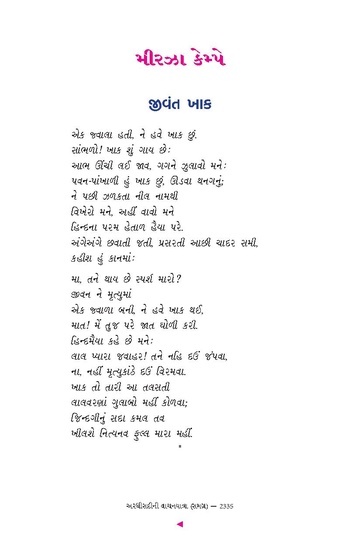 મીરઝા કેમ્પે
જીવંત ખાક
એક જ્વાલા હતી, ને હવે ખાક છું.
સાંભળો! ખાક શું ગાય છેઃ
આભ ઊંચી લઈ જાવ, ગગને ઝુલાવો મનેઃ
પવન-પાંખાળી હું ખાક છું, ઊડવા થનગનું;
ને પછી ઝળકતા નીલ નામથી
વિખેરો મને, અહીં વાવો મને
હિન્દના પરમ હેતાળ હૈયા પરે.
અંગેઅંગે છવાતી જતી, પ્રસરતી આછી ચાદર સમી,
કહીશ હું કાનમાંઃ
મા, તને થાય છે સ્પર્શ મારો?
જીવન ને મૃત્યુમાં
એક જ્વાળા બની, ને હવે ખાક થઈ,
માત! મેં તુજ પરે જાત ચોળી કરી.
હિન્દમૈયા કહે છે મનેઃ
લાલ પ્યારા જવાહર! તને નહિ દઉં જંપવા,
ના, નહીં મૃત્યુકાંઠે દઉં વિરમવા.
ખાક તો તારી આ તલસતી
લાલવરણાં ગુલાબો મહીં કોળવા;
જિન્દગીનું સદા કમલ તવ
ખીલશે નિત્યનવ ફુલ્લ મારા મહીં.
*
અરધીસદીની વાચનયાત્રા (સમગ્ર) — 2335